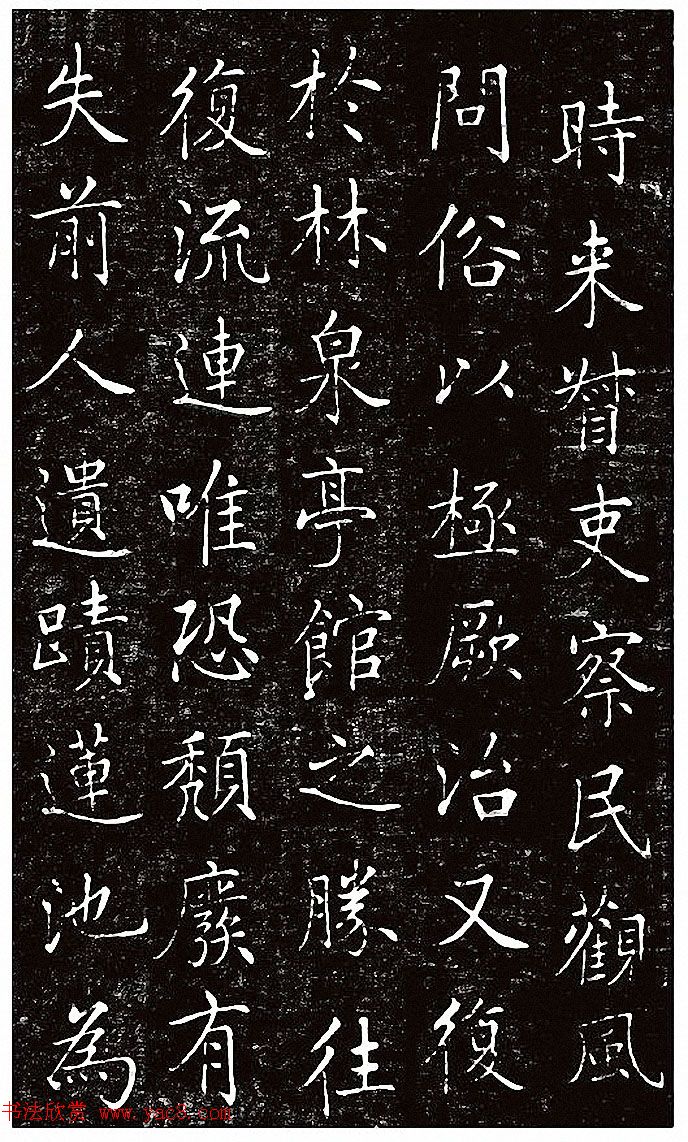 時来督吏察民觀風
問俗以極厥治又復
於林泉亭館之勝往
復流連唯恐頽廢有
失前人遺蹟蓮池為
书法欣赏 www.yac8.com